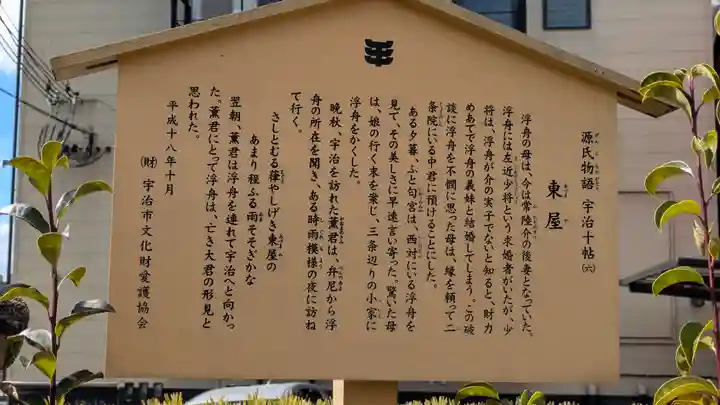 源氏物語 宇治十帖(六)
東屋
浮舟の母は、今は常陸介の後妻となっていた。
浮舟には左近少将という求婚者がいたが、少
将は、浮舟が介の実子でないと知ると、財力
めあてで浮舟の義妹と結婚してしまう。この破
談に浮舟を不憫に思った母は、縁を頼って二
条院にいる中君に預けることにした。
ある夕暮、ふと匂宮は、西対にいる浮舟を
見て、その美しさに早速言い寄った。驚いた母
は、娘の行く末を案じ、三条辺りの小家に
浮舟をかくした。
晩秋、宇治を訪れた薫君は、弁尼から浮
舟の所在を聞き、ある時雨模様の夜に訪ね
て行く。
さしとむる葎やしげき東屋の
あまり程ふる雨そそぎかな
翌朝、薫君は浮舟を連れて宇治へと向かっ
た。薫君にとって浮舟は、亡き大君の形見と
思われた。
平成十八年十月
(財)宇治市文化財愛護協会